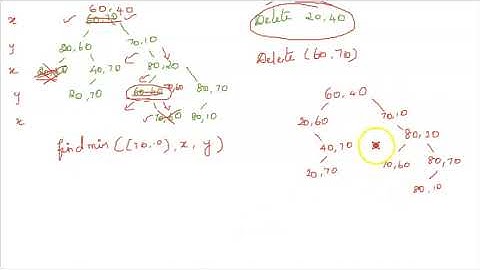 60,40
x 60,70 Delete 20,40
y 20,60 70,10 Delete (60,70)
x 40,70 80,20
y 20,70 60,40 70,60 80,70
x 70,60 80,10
findmin([70,10],x, y)
60,40
20,60 70,10
40,70 80,20
20,70 70,60 80,70
80,10